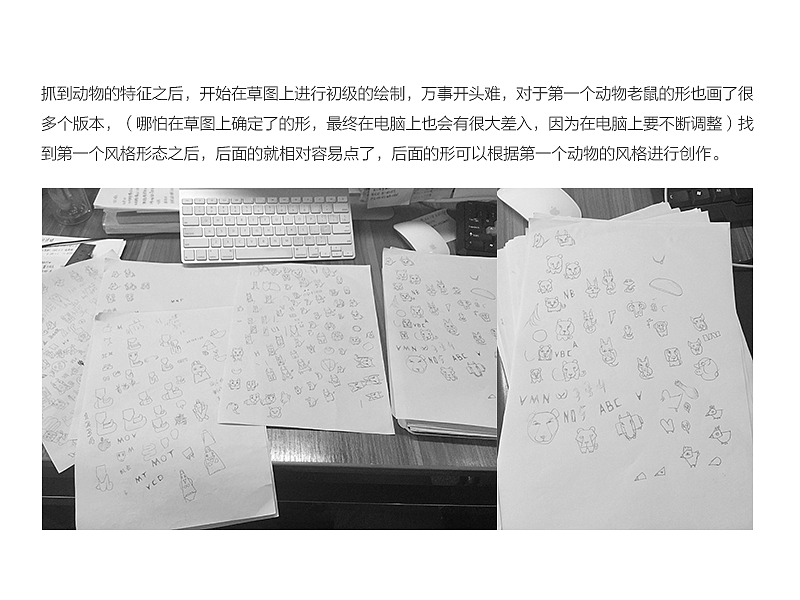 抓到动物的特征之后，开始在草图上进行初级的绘制，万事开头难，对于第一个动物老鼠的形也画了很
多个版本，（哪怕在草图上确定了的形，最终在电脑上也会有很大差入，因为在电脑上要不断调整）找
到第一个风格形态之后，后面的就相对容易点了，后面的形可以根据第一个动物的风格进行创作。
MOT
MOV
MOT
MT
YCD
VBC
A
VMN
ABC
V
NB
A
VBC
VMN
ABC
V